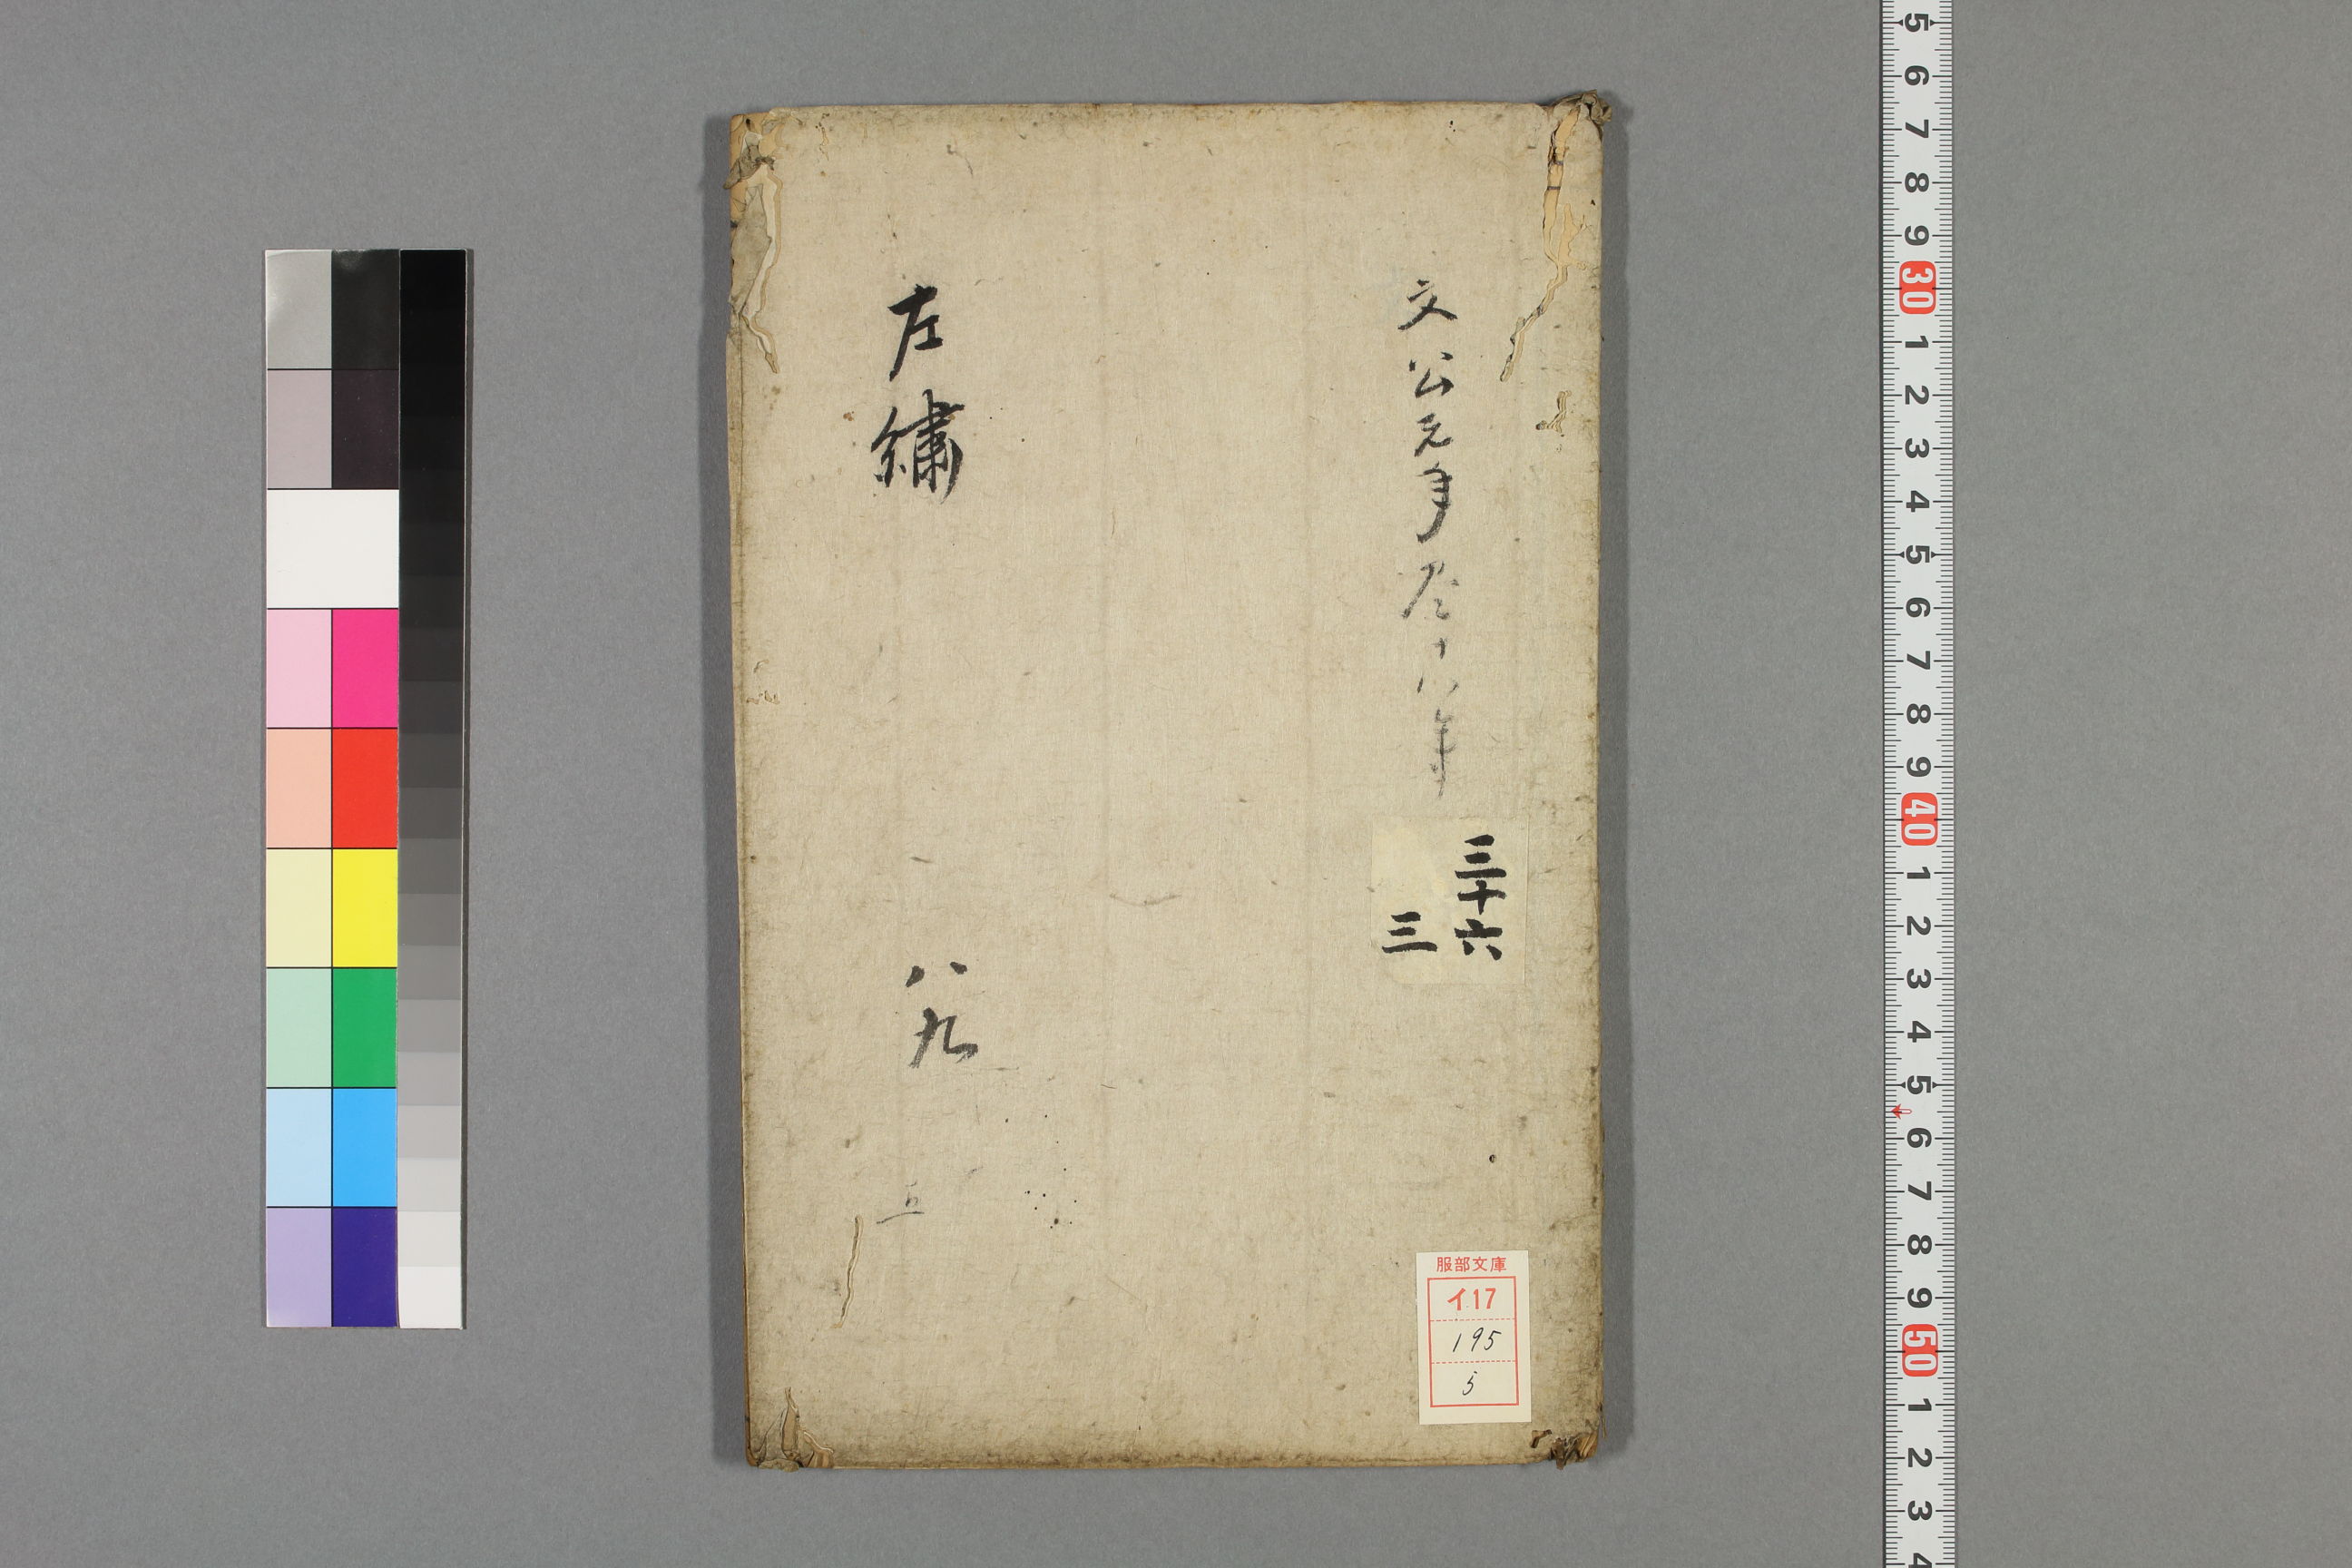 文公元年尽十八年
三十六
三
左繡
八九
五
服部文庫
イ17
195
5
5
6
7
8
9
30
1
2
3
4
5
6
7
8
9
40
1
2
3
4
5
6
7
8
9
50
1
2
3
4